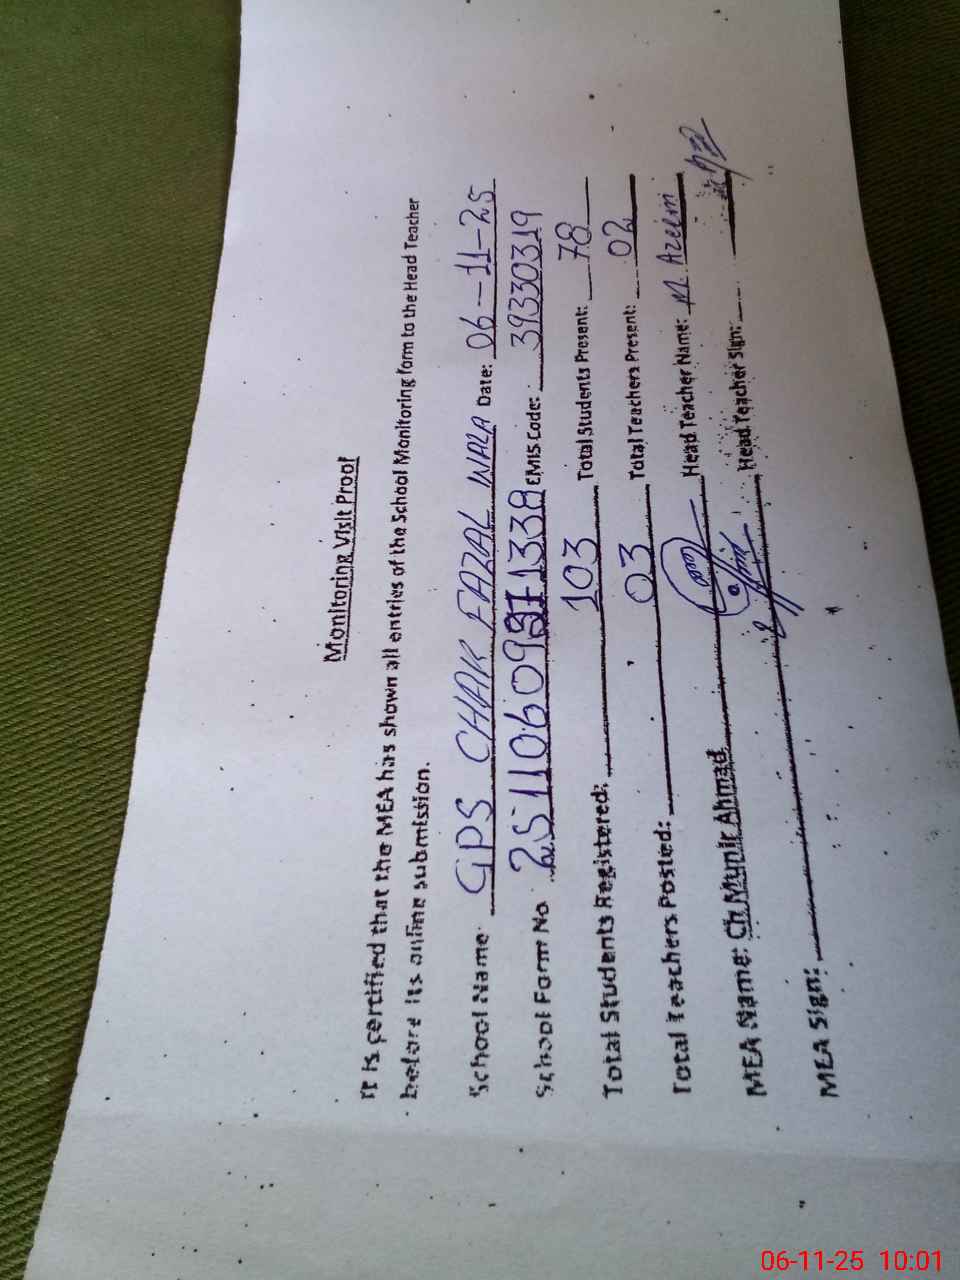 Monitoring Visit Proof
It is certified that the MEA has shown all entries of the School Monitoring form to the Head Teacher
before its online submission.
School Name: GPS CHAK FAZAL WALA Date: 06-11-25
School Form No. EMIS Code: 39330319
Total Students Registered: 103 Total Students Present: 78
Total Teachers Posted: 03 Total Teachers Present: 02
MEA Name: Ch Munir Ahmad Head Teacher Name: M. Azeem
MEA Sign: Head Teacher Sign:
06-11-25 10:01